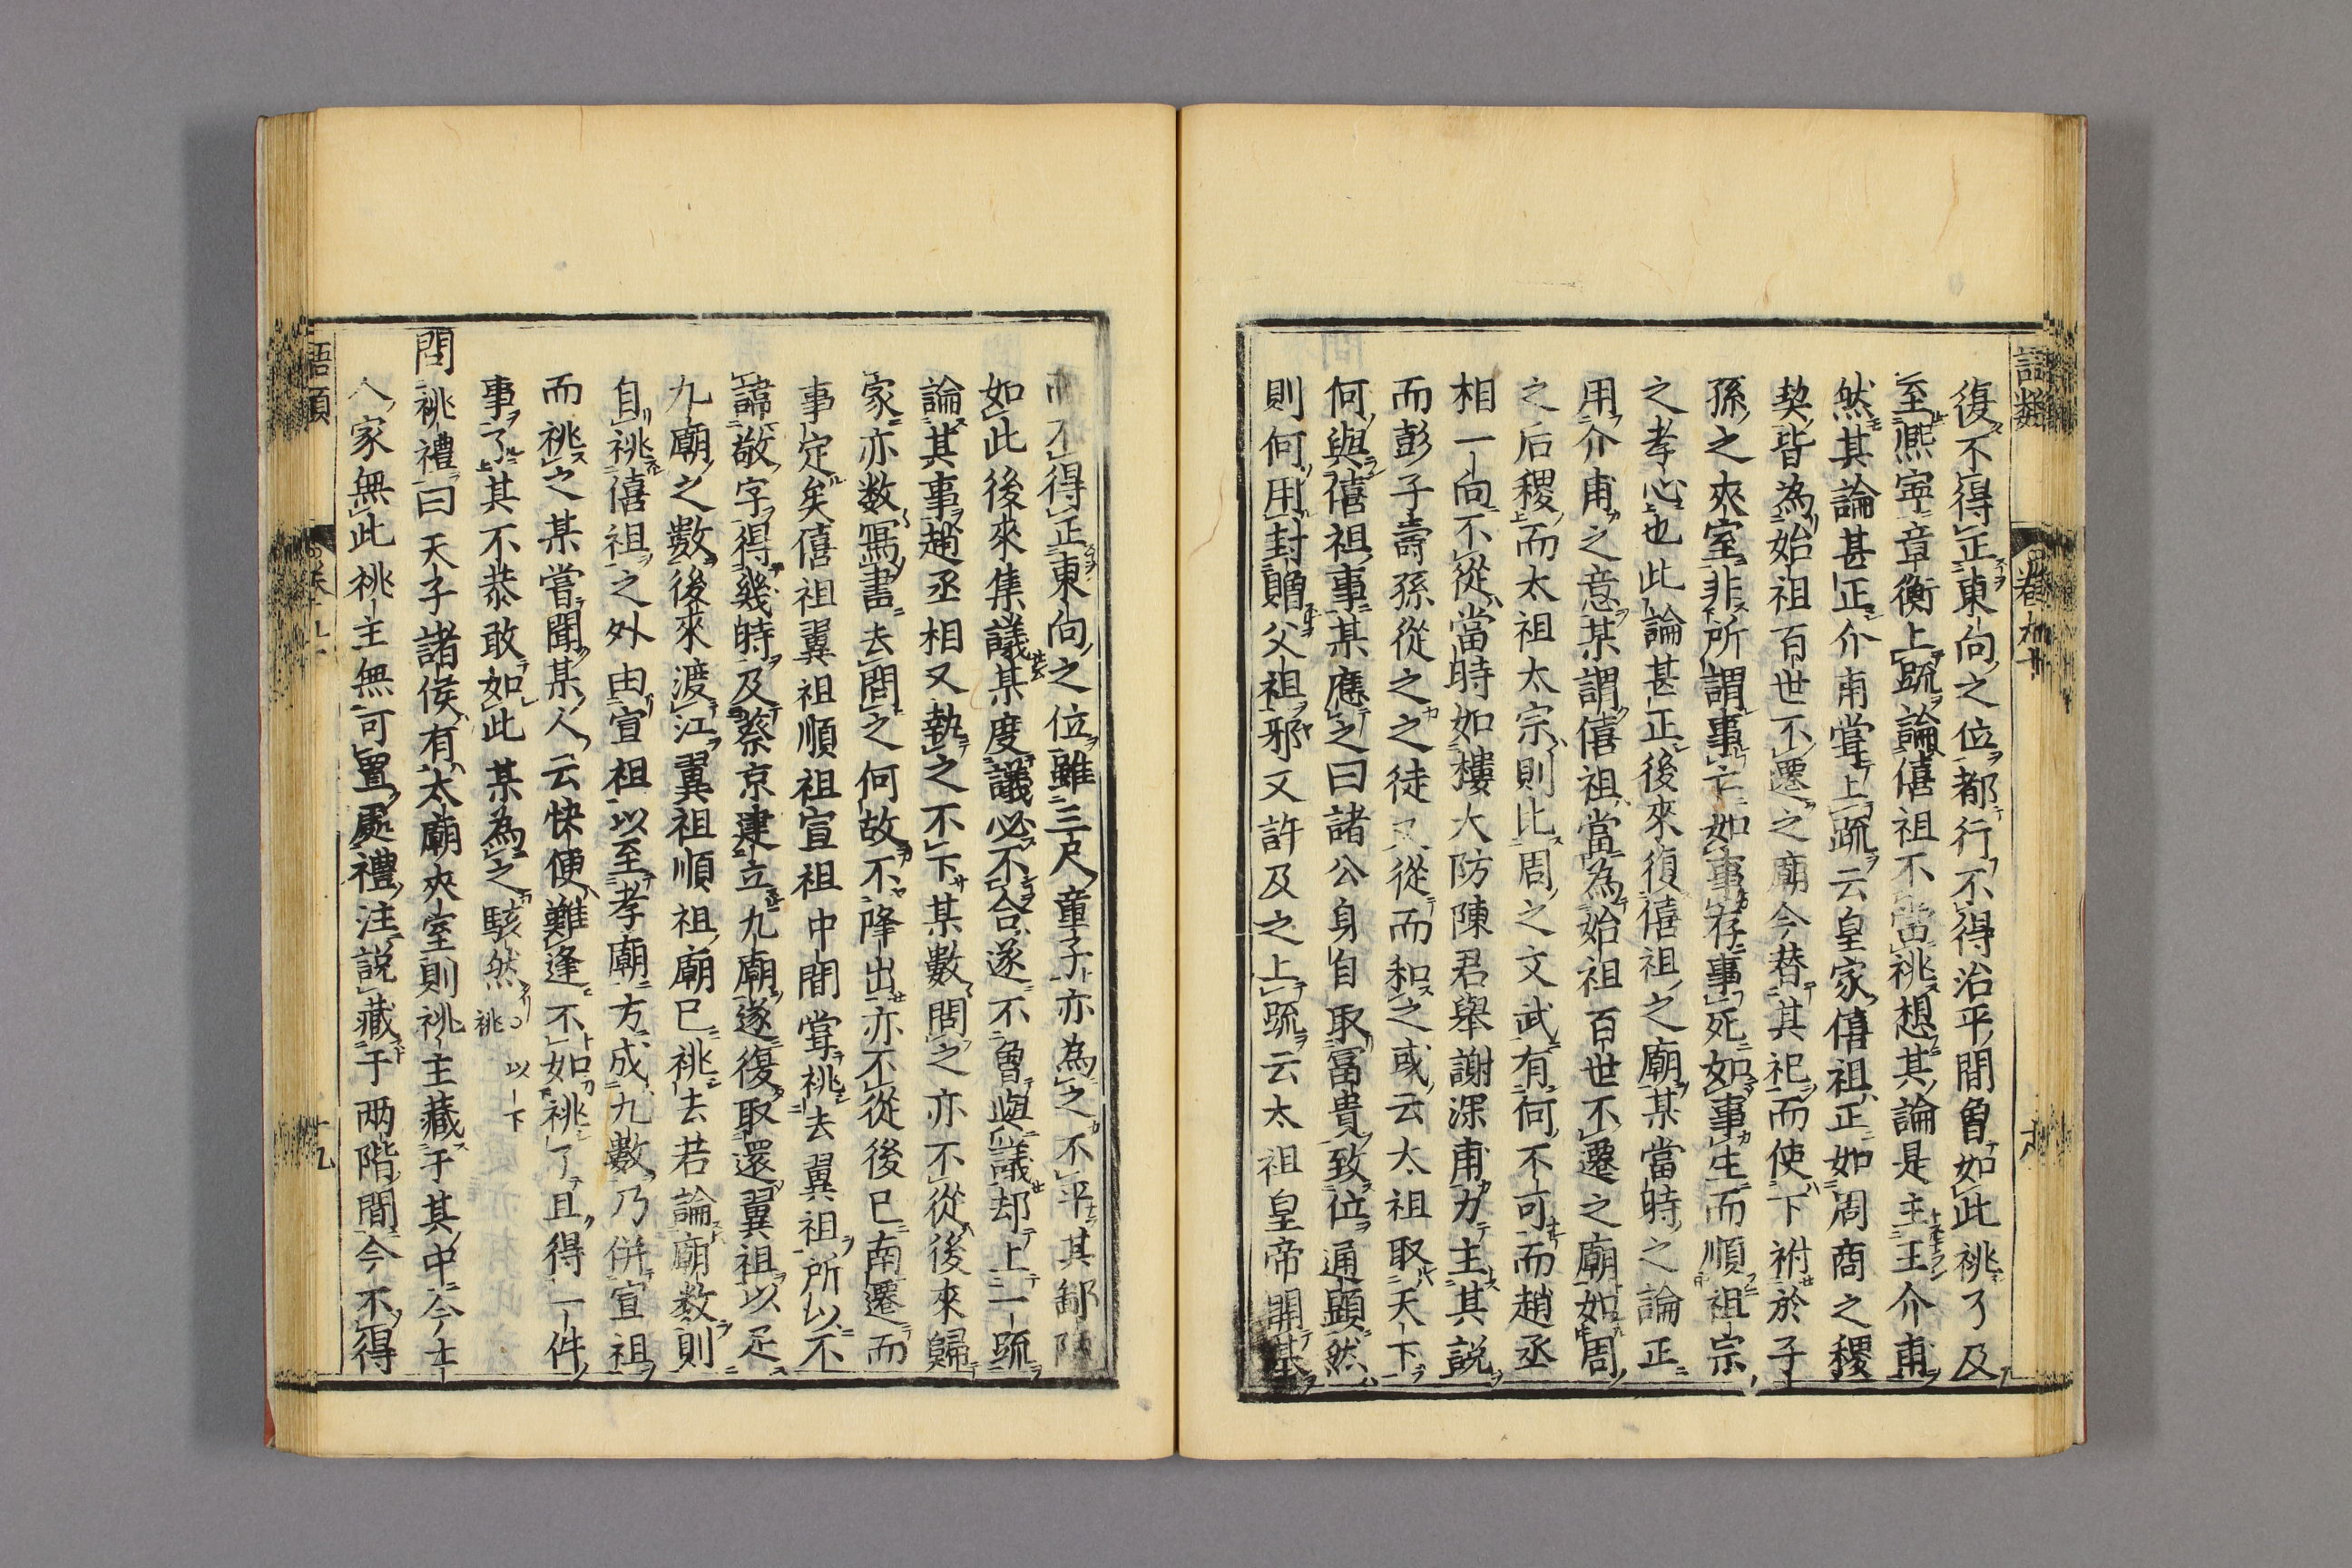 語類 卷九十
復不得正東向之位都行不得治平間曾如此祧了及
至熈寧章衡上疏論僖祖不當祧想其論是主王介甫
然其論甚正介甫嘗上疏云皇家僖祖正如周商之稷
契皆為始祖百世不遷之廟今替其祀而使下祔於子
孫之夾室非所謂事亡如事存事死如事生而順祖宗
之孝心也此論甚正後來復僖祖之廟某當時之論正
用介甫之意某謂僖祖當為始祖百世不遷之廟如周
之后稷而太祖太宗則比周之文武有何不可而趙丞
相一向不從當時如樓大防陳君舉謝深甫力主其說
而彭子壽孫從之之徒又從而和之或云太祖取天下
何與僖祖事某應之曰諸公身自取富貴致位通顯然
則何用封贈父祖邪又許及之上疏云太祖皇帝開基
而不得正東向之位雖三尺童子亦為之不平其鄙陋
如此後來集議某度議必不合遂不曾與議却上一疏
論其事趙丞相又執之不下某數問之亦不從後來歸
家亦数寫書去問之何故不降出亦不從後已南遷而
事定矣僖祖翼祖順祖宣祖中間嘗祧去翼祖所以不
諱敬字得幾時及蔡京建立九廟遂復取還翼祖以足
九廟之數後來渡江翼祖順祖廟已祧去若論廟数則
自祧僖祖之外由宣祖以至孝廟方成九數乃併宣祖
而祧之某嘗聞某人云快便難逢不如祧了且得一件
事了其不恭敢如此某為之駭然 ○以下祧
問祧禮曰天子諸侯有太廟夾室則祧主藏于其中今士
人家無此祧主無可置處禮注說藏于两階間今不得
語類